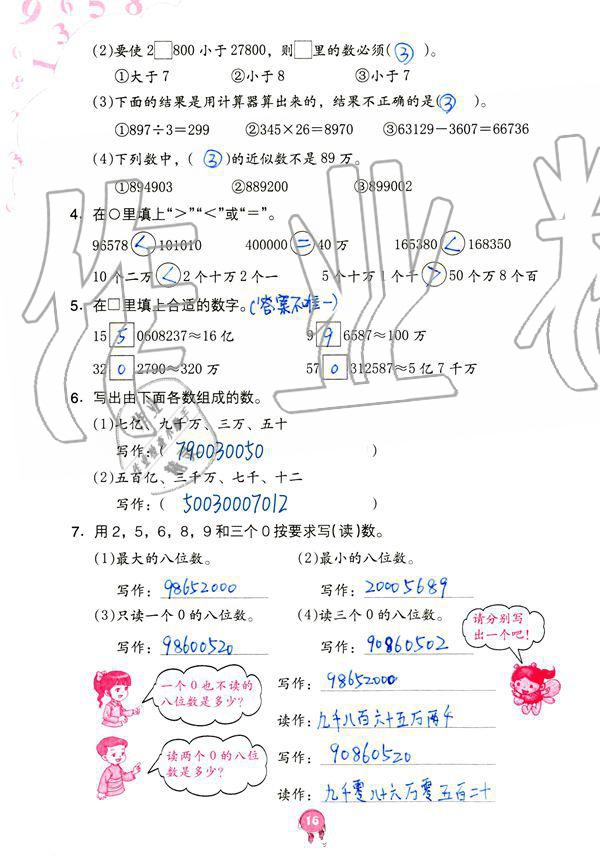 (2)要使2□800小于27800，则□里的数必须(③)。
①大于7 ②小于8 ③小于7
(3)下面的结果是用计算器算出来的，结果不正确的是(③)。
①897÷3=299 ②345×26=8970 ③63129-3607=66736
(4)下列数中，(③)的近似数不是89万。
①894903 ②889200 ③899002
4. 在○里填上“>”“<”或“=”。
96578<101010 400000=40万 165380<168350
10个二万<2个十万2个一 5个十万1个千>50个万8个百
5. 在□里填上合适的数字。(答案不唯一)
15 5 0608237≈16亿 9 9 6587≈100万
32 0 2790≈320万 57 0 312587≈5亿7千万
6. 写出由下面各数组成的数。
(1)七亿、九千万、三万、五十
写作：(790030050)
(2)五百亿、三千万、七千、十二
写作：(50030007012)
7. 用2，5，6，8，9和三个0按要求写(读)数。
(1)最大的八位数。 (2)最小的八位数。
写作：98652000 写作：20005689
(3)只读一个0的八位数。 (4)读三个0的八位数。
写作：98600520 写作：90860502
请分别写
出一个吧！
一个0也不读的
八位数是多少？
写作：98652000
读作：九千八百六十五万两千
读两个0的八位
数是多少？
写作：90860520
读作：九千零八十六万零五百二十
16
作业精